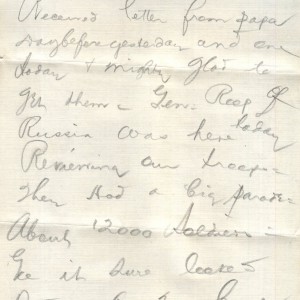 Received letter from papa
day before yesterday and one
today & mighty glad to
get them - Gen. Roop of
Russia was here today
Reviewing our troops -
They Had a big parade -
About 12000 Soldiers -
Gee it sure looked